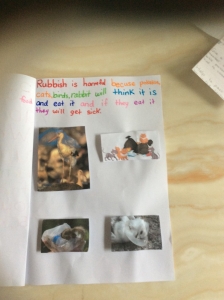 Rubbish is harmful because possums,
cats, birds, rabbit will think it is
food and eat it and if they eat it
they will get sick